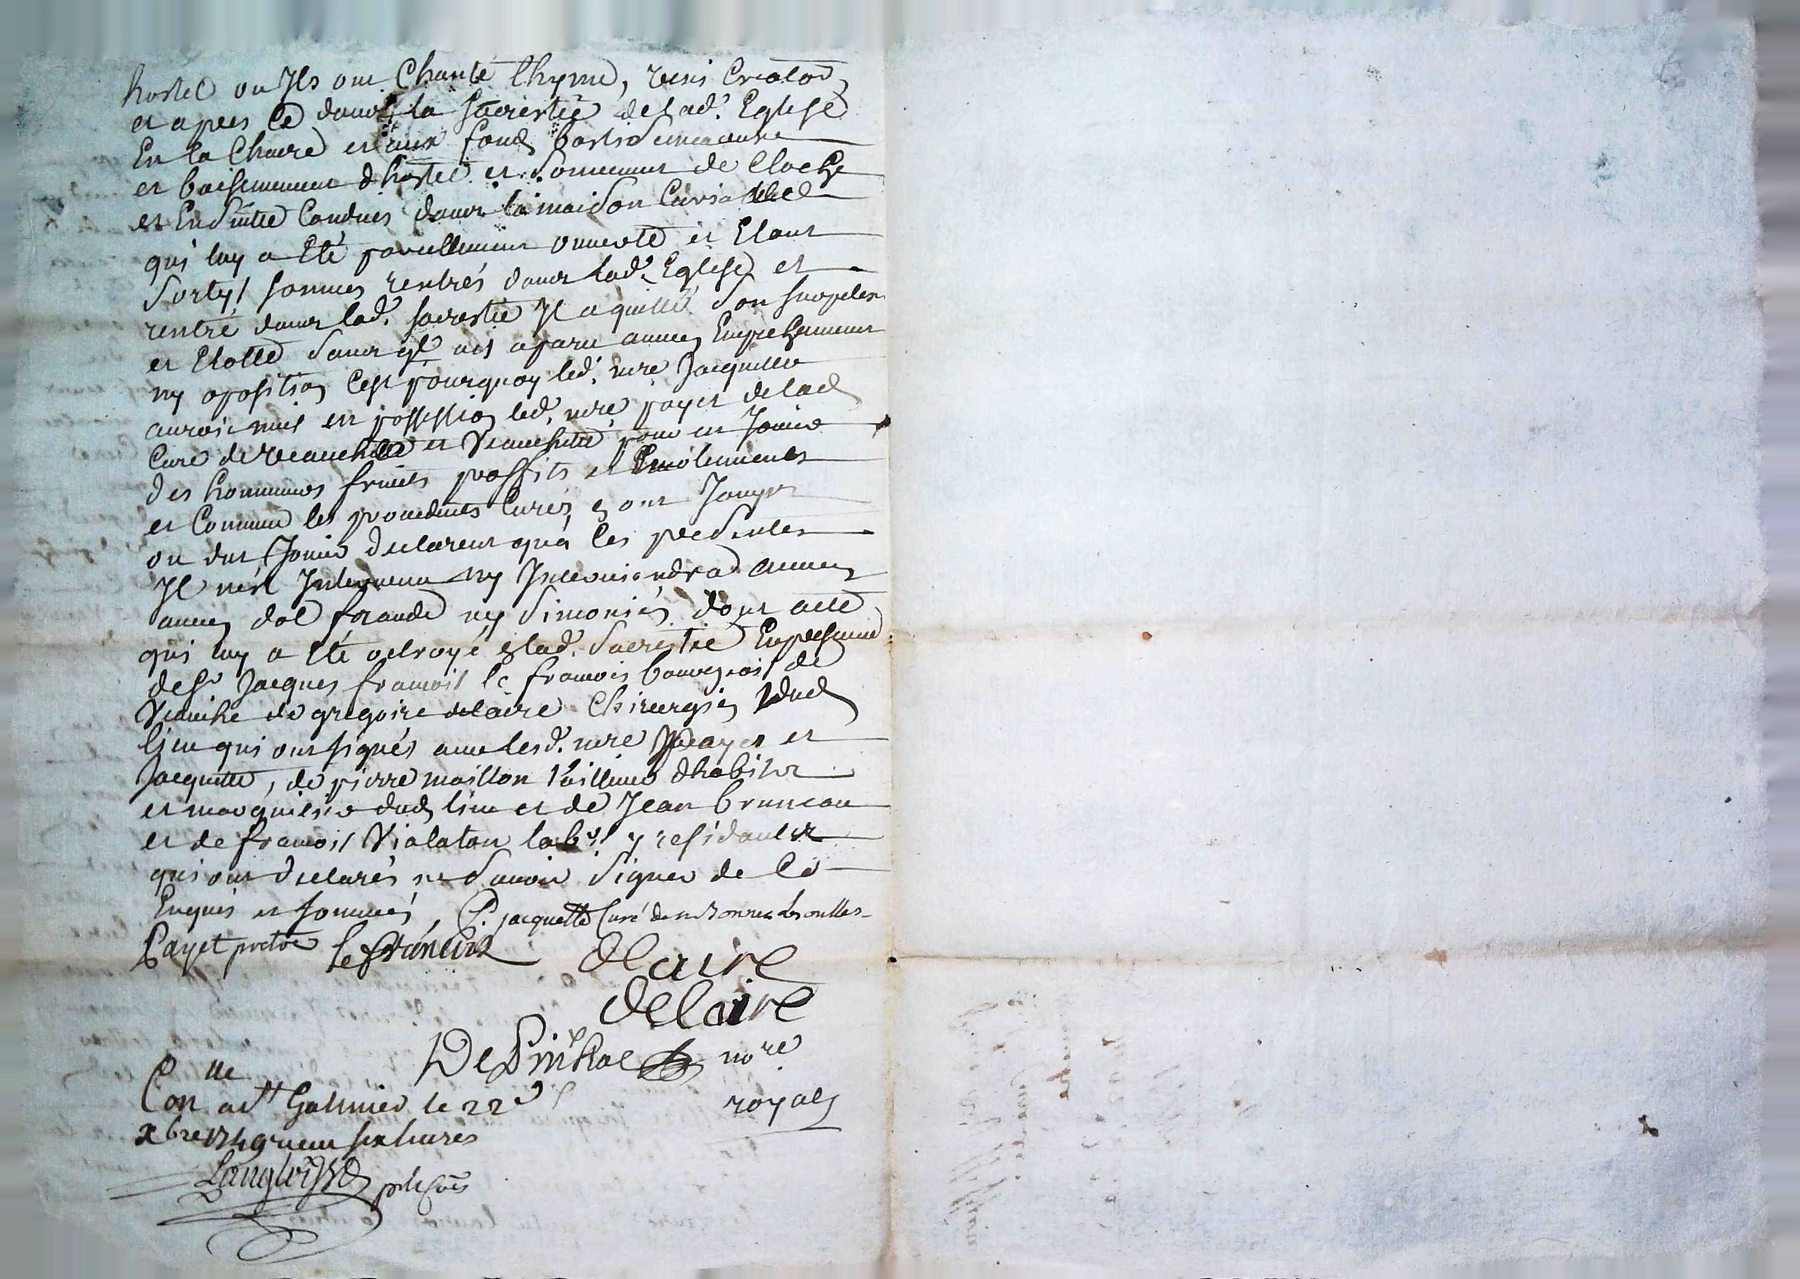 hostel ou Ils ont Chanté lhymne, veni Creator
et apres Ce dans la Sacrestie de lad.e Eglise
En la Chaire et aux fonds
et baisemement dhostel et Sonnement de Cloche
et Ensuitte Conduis dans la maison Curialle
qui luy a Eté pareillement ouverte et Etant
Sortys sommes rentrés dans lad.e Eglise et
rentré dans lad.e sacrestie Il a quitté Son surpelis
et Etolle Sans q'il ait aparu aucun Empechement
ny oposition Cest pourquoy led.t mre Jacquette
auroit mis en possession led.t mre payet de lad
Cure de veauche et Veauchette pour en Jouir
des honneurs fruits proffits et Emolumens
et Comme les precedents Curés en ont Jouys
ou dut Jouir declarent qua Ces presentes
Il nest Intervenu ny Interviendra aucun
aucun dol fraude ny Simonie, dont acte
qui luy a Eté octroyé en lad.e Sacrestie En presence
de Sr Jacques francois le francois bourgeois de
Veauche de gregoire delaire Chirurgien dud
lieu qui ont signés avec lesd.t mre Payet et
Jacquette, de pierre maillon tailleur dhabits
et marguilier dud lieu et de Jean bruneau
et de francois Violaton labr. y residants
qui ont declarés ne Savoir Signer de Ce
Enquis et sommés, P. jacquette Curé de
Payet pretre le francois
delaire
delaire
nore
royal
Con.lle a st Galmier le 22e
xbre 1749 receu six livres
Langloysse